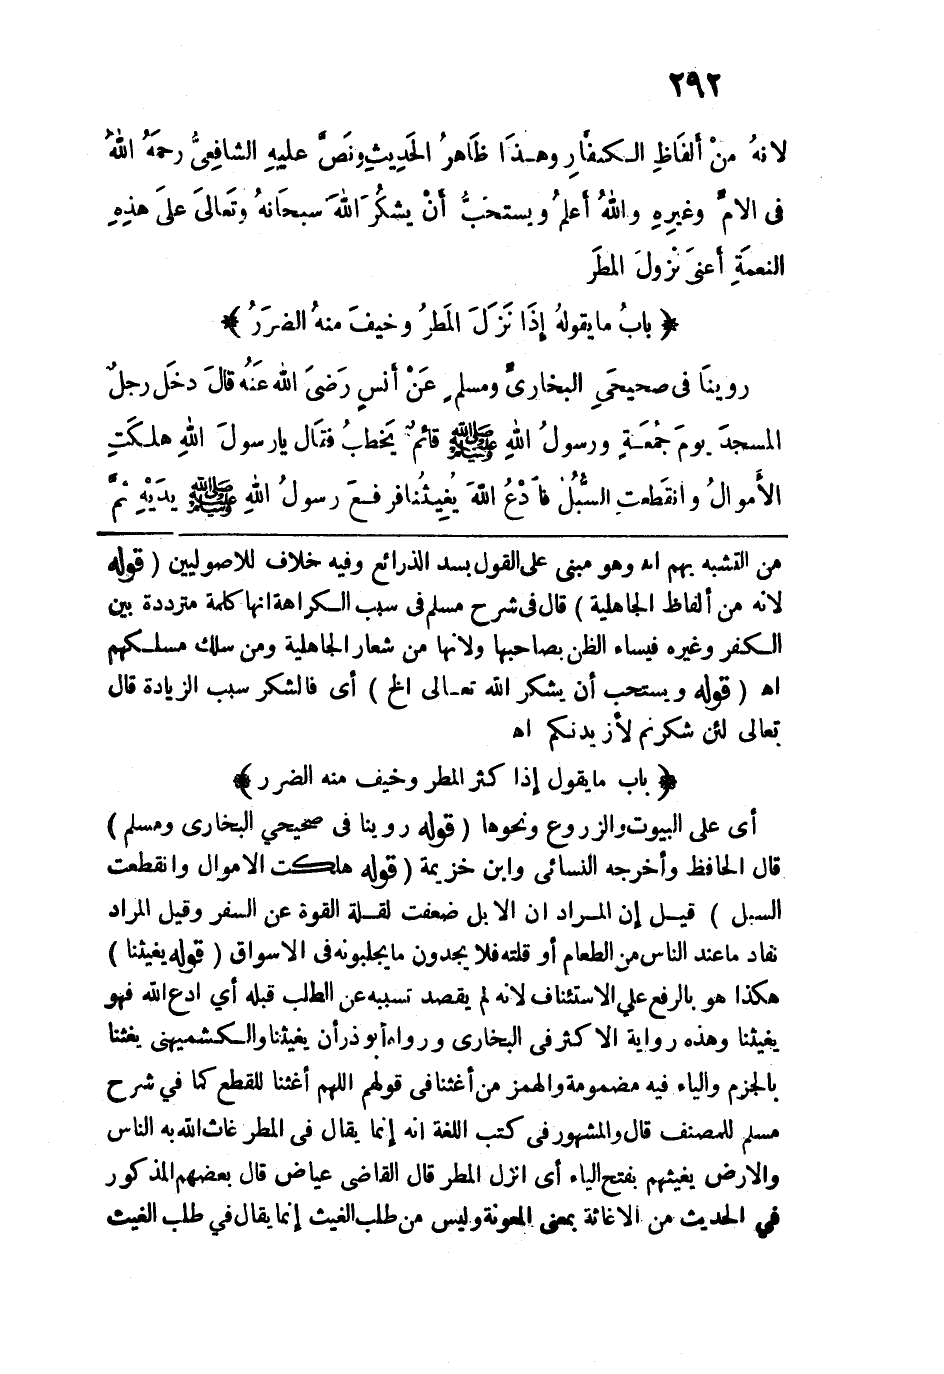 ٢٩٢
لانهُ منْ ألفَاظِ الـكـفَّارِ وهـذَا ظَاهرُ الحَدِيثِ ونَصَّ عليهِ الشافِعِيُّ رحمَهُ اللهُ
فى الامِّ وغيرِهِ واللهُ أعلمُ ويستحَبُّ أنْ يشكُرَ اللهَ سبحَانهُ وتَعالىَ علىَ هذِهِ
النعمَةِ أعنىَ نزُولَ المطَرِ
﴿ بابُ مايقولهُ إذَا نَزَلَ المَطرُ وخيفَ منهُ الضرَرُ ﴾
روينَا فى صحيحَيِ البخارىِّ ومسلمٍ عَنْ أنسٍ رَضىَ الله عَنهُ قالَ دخَل رجلٌ
المسجدَ يومَ جُمُعَـةٍ ورسولُ اللهِ ﷺ قائمٌ يَخطبُ فقَال يارسولَ اللهِ هلـكَتِ
الأَموالُ وانقَطعتِ السُّبُلُ فَادْعُ اللهَ يُغِيثُنا فرفـعَ رسولُ اللهِ ﷺ يديْهِ ثمَّ
من التشبه بهم اه وهو مبنى على القول بسد الذرائع وفيه خلاف للاصوليين ( قوله
لانه من ألفاظ الجاهلية ) قال فى شرح مسلم فى سبب الـكراهة انها كلمة مترددة بين
الـكفر وغيره فيساء الظن بصاحبها ولانها من شعار الجاهلية ومن سلك مسلـكهم
اه ( قوله ويستحب أن يشكر الله تعـالى الخ ) أى فالشكر سبب الزيادة قال
تعالى لئن شكرتم لأزيدنـكم اه
﴿ باب مايقول إذا كثر المطر وخيف منه الضرر ﴾
أى على البيوت والزروع ونحوها ( قوله روينا فى صحيحي البخارى ومسلم )
قال الحافظ وأخرجه النسائى وابن خزيمة ( قوله هلـكت الاموال وانقطعت
السبل ) قيـل إن المـراد ان الابل ضعفت لقـلة القوة عن السفر وقيل المراد
نفاد ماعند الناس من الطعام أو قلته فلا يجدون مايجلبونه فى الاسواق ( قوله يغيثنا )
هكذا هو بالرفع على الاستئناف لانه لم يقصد تسببه عن الطلب قبله أي ادع الله فهو
يغيثنا وهذه رواية الاكثر فى البخارى ورواه أبو ذر أن يغيثنا والـكشميهنى يغثنا
بالجزم والياء فيه مضمومة والهمز من أغثنا فى قولهم اللهم أغثنا للقطع كما في شرح
مسلم للمصنف قال والمشهور فى كتب اللغة انه إنما يقال فى المطر غاث الله به الناس
والارض يغيثهم بفتح الياء أى انزل المطر قال القاضى عياض قال بعضهم المذكور
في الحديث من الاغاثة بمعنى المعونة وليس من طلب الغيث إنما يقال في طلب الغيث